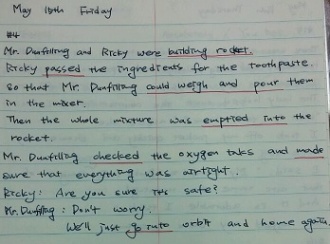 May 15th Friday
#4
Mr. Dunfilling and Ricky were building rocket.
Ricky passed the ingredients for the toothpaste.
So that Mr. Dunfilling could weigh and pour them
in the mixer.
Then the whole mixture was emptied into the
rocket.
Mr. Dunfilling checked the oxygen taks and made
sure that everything was airtight.
Ricky: Are you sure it's safe?
Mr. Dunfilling: Don't worry.
We'll just go into orbit and home again.